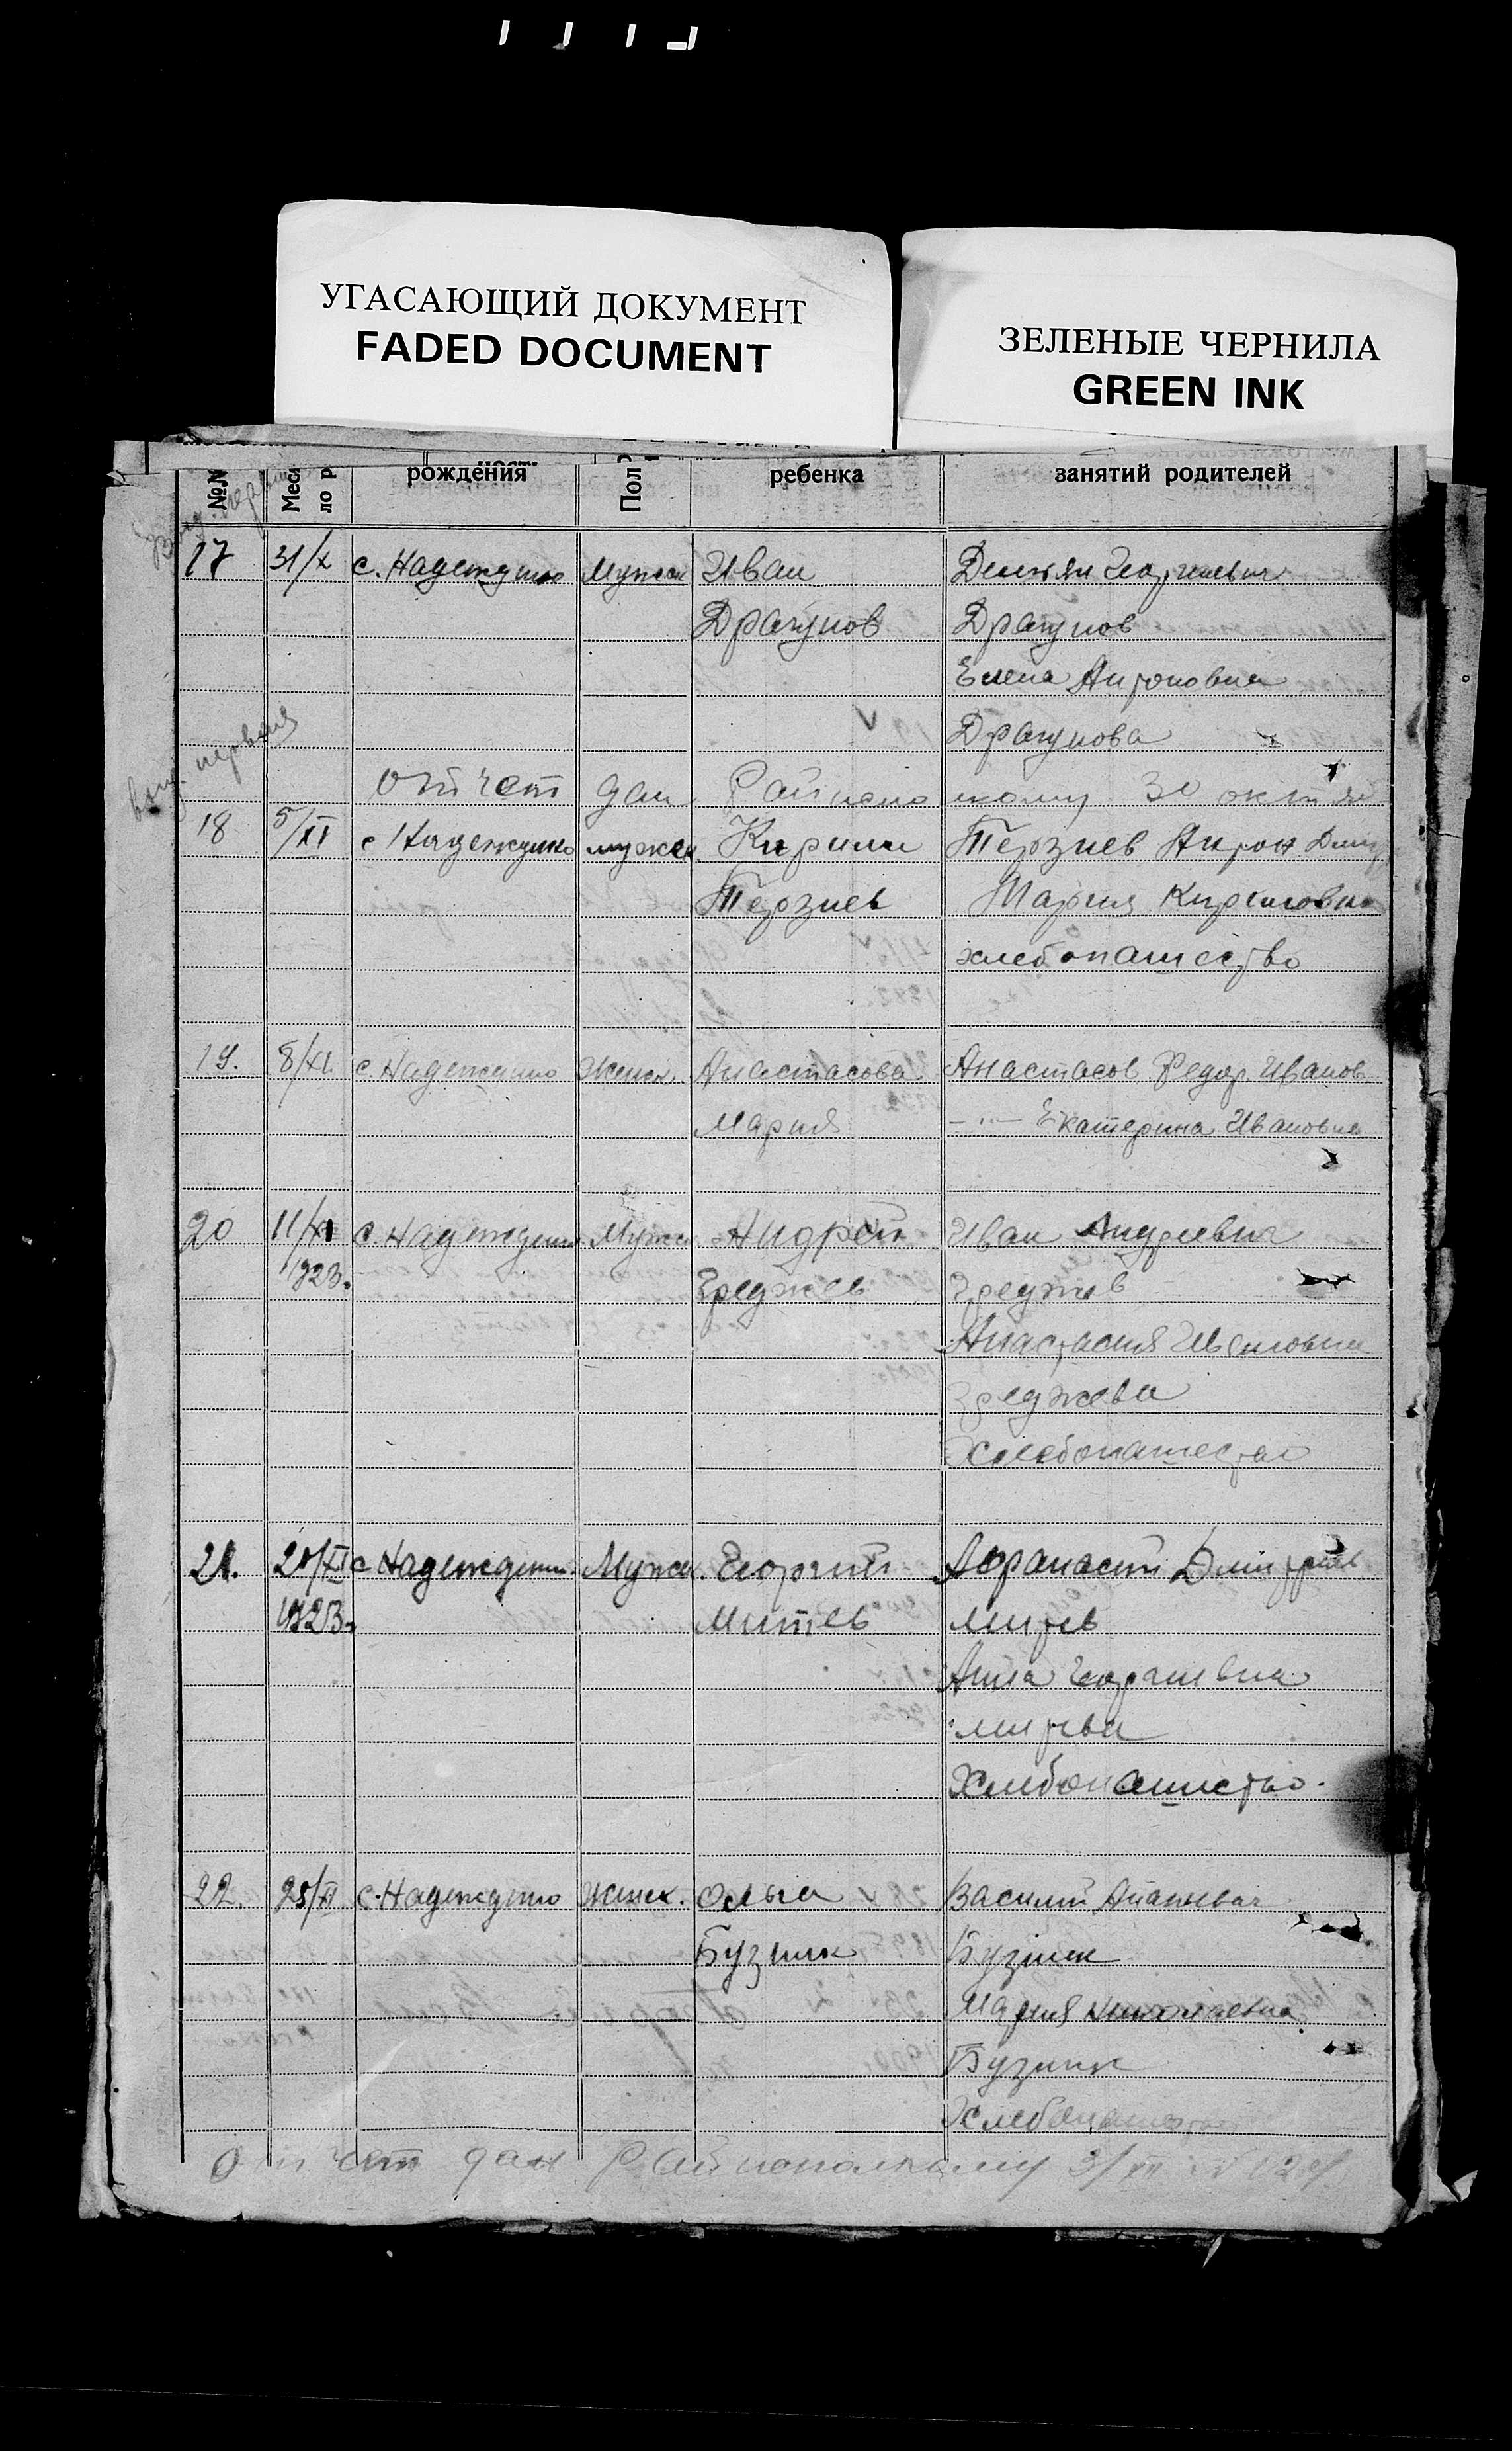 УГАСАЮЩИЙ ДОКУМЕНТ
FADED DOCUMENT
ЗЕЛЕНЫЕ ЧЕРНИЛА
GREEN INK
№№ Мес ло р рождения Пол ребенка занятий родителей
17 31/X с. Надеждино Мужск Иван Демьян Георгиевич
Драгунов Драгунов
Елена Антоновна
Драгунова
выд. первая
Отчет дан Райиспо лкому 30 октяб
18 5/XI с Надеждино мужск. Кирилл Терзиев Антон Дмит
Терзиев Мария Кирилловна
хлебопашество
19. 8/XI. с. Надеждино Женск. Анастасова Анастасов Федор. Иванов
Мария —"— Екатерина Ивановна
20 11/XI с. Надеждино Мужск Андрей Иван Андреевич
1923. Греджев Греджев
Анастасия Ивановна
Греджева
Хлебопашество
21. 20/XI с Надеждин. Мужск. Георгий Афанасий Дмитриев
1923. Митев Митев
Анна Георгиевна
Митева
Хлебопашество.
22. 25/XI с. Надеждино Женск. Ольга Василий
Бузник Бузник
Мария Николаевна
Бузник
Хлебопашество
Отчет дан Райисполкому 3/XII